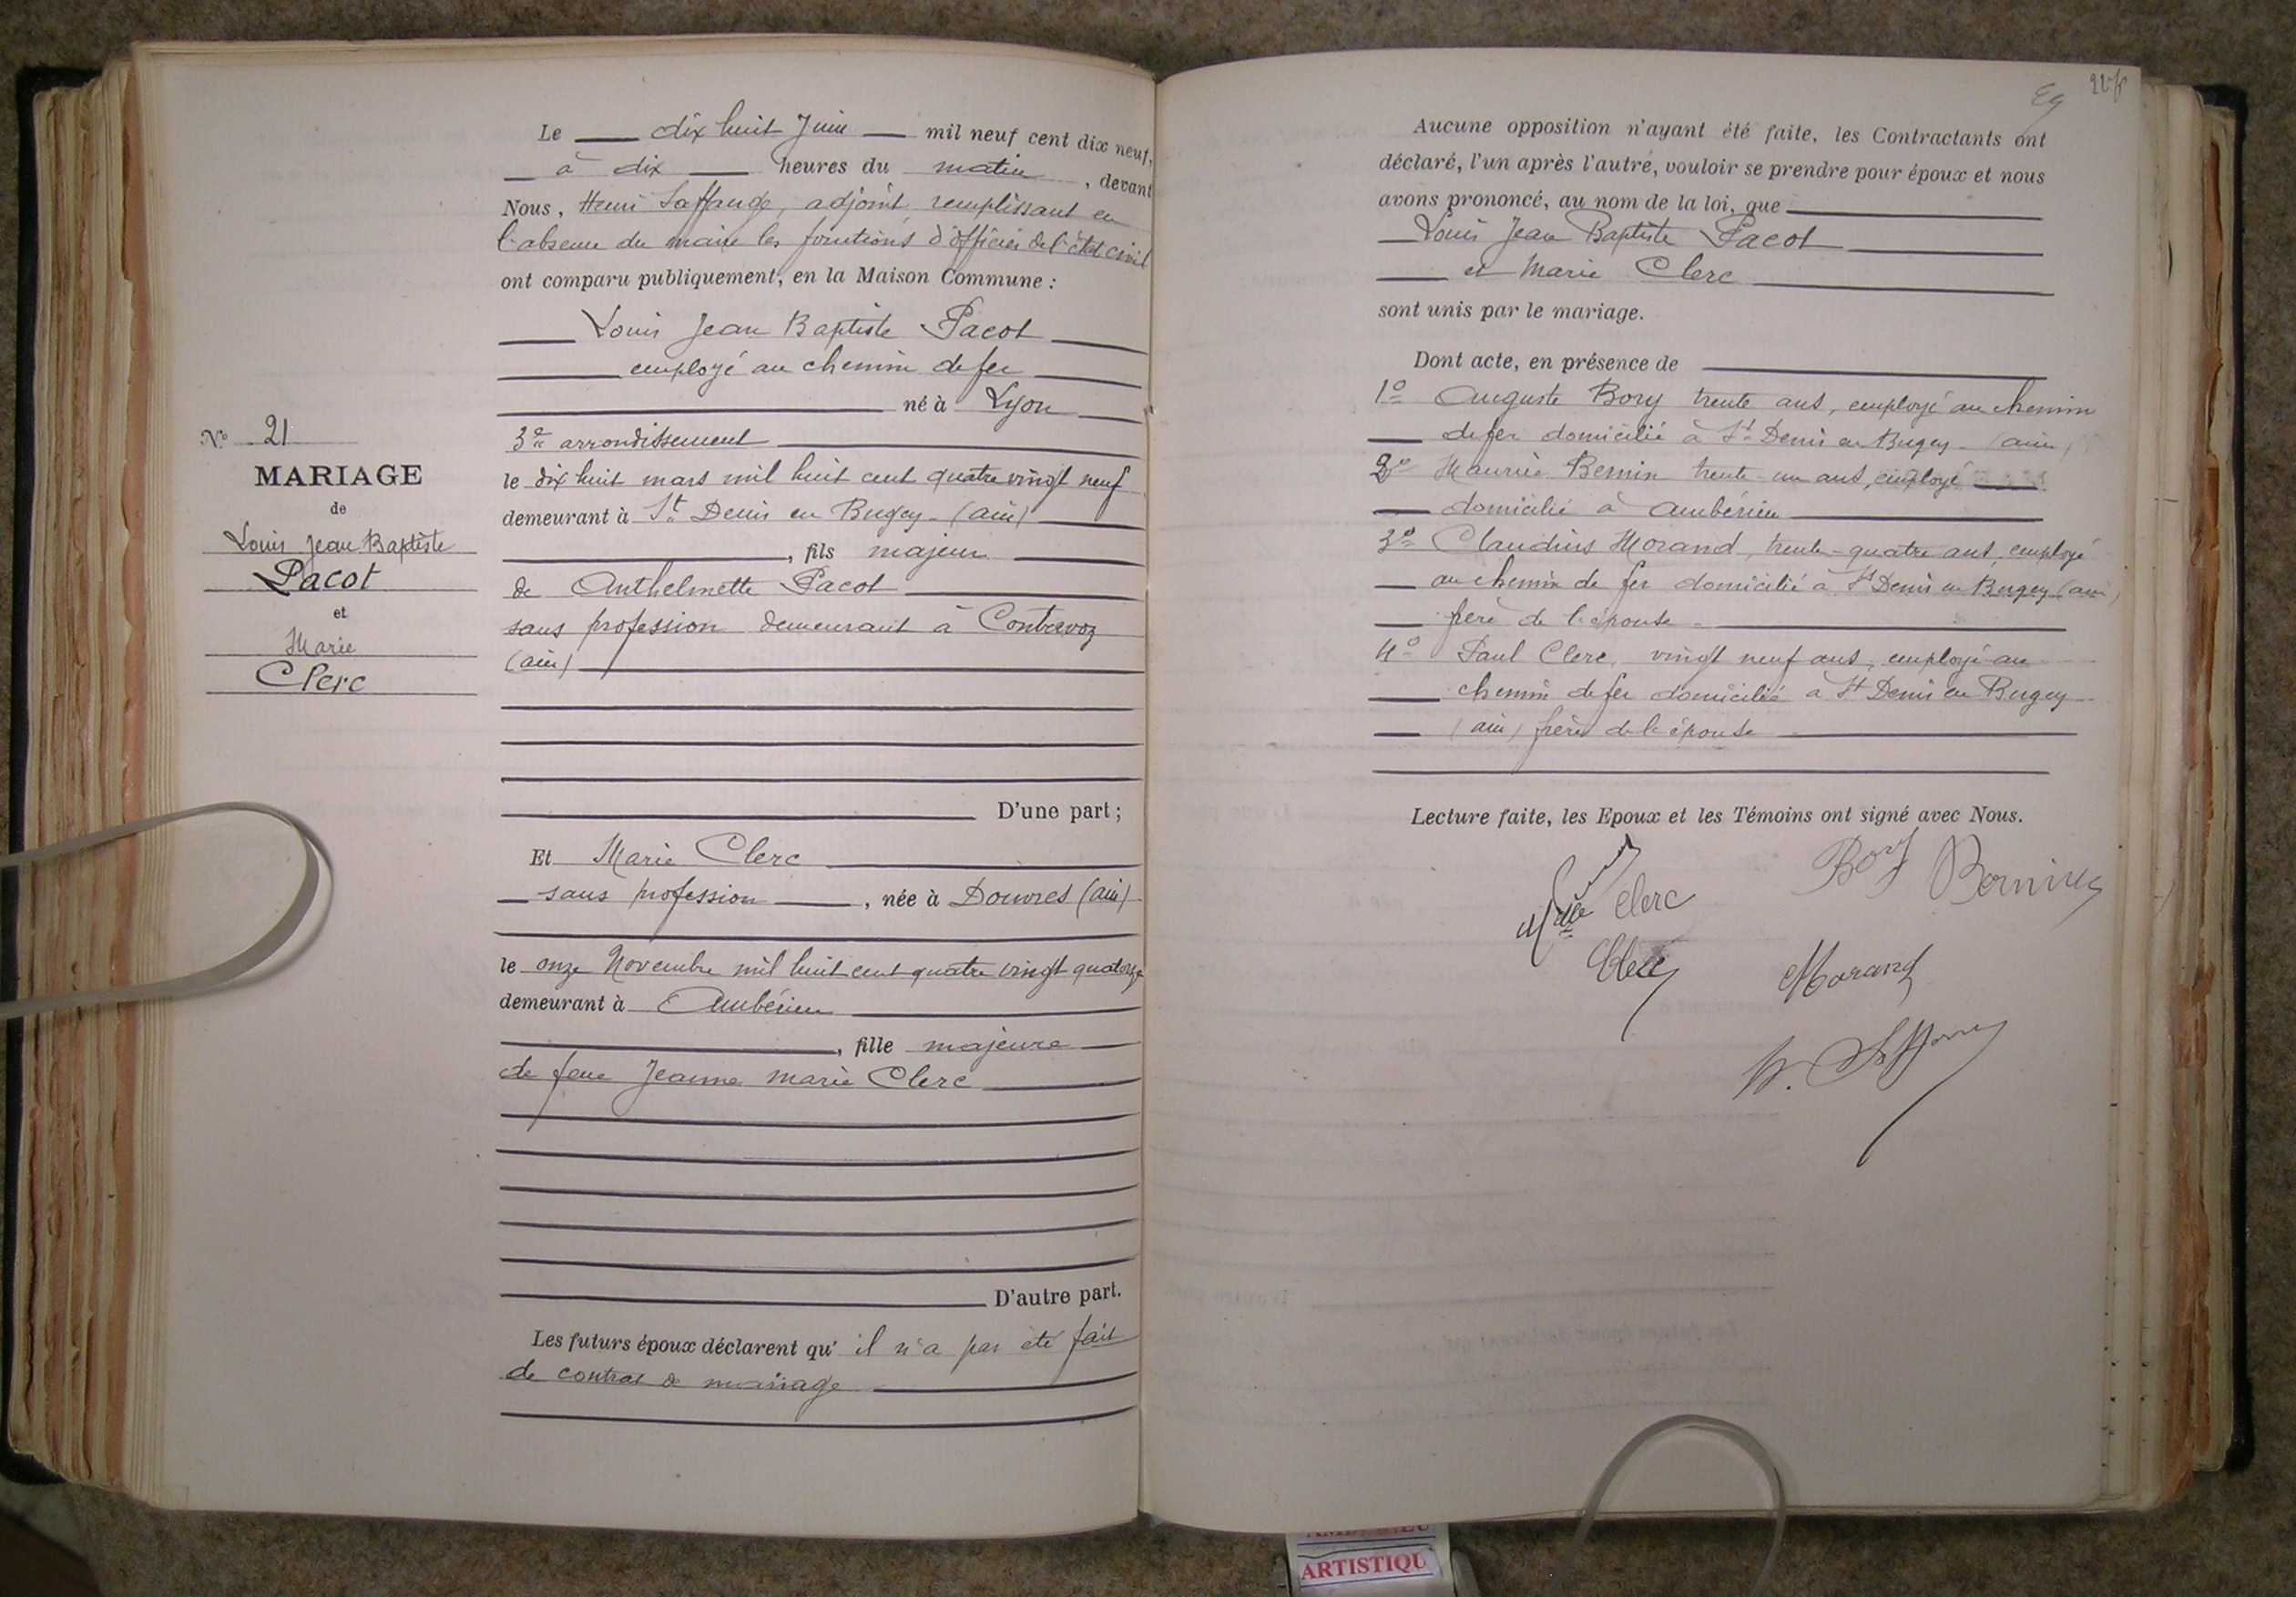 N° 21
MARIAGE
de
Louis Jean Baptiste
Pacot
et
Marie
Clerc
Le dix huit Juin mil neuf cent dix neuf,
à dix heures du matin, devant
Nous, Henri Laffange, adjoint, remplissant en
l'absence du maire les fonctions d'officier de l'état civil
ont comparu publiquement, en la Maison Commune :
Louis Jean Baptiste Pacot
employé au chemin de fer
né à Lyon
3e arrondissement
le dix huit mars mil huit cent quatre vingt neuf
demeurant à St Denis en Bugey (ain)
, fils majeur
de Anthelmette Pacot
sans profession demeurant à Contrevoz
(ain)
D'une part ;
Et Marie Clerc
sans profession, née à Douvres (ain)
le onze Novembre mil huit cent quatre vingt quatorze
demeurant à Ambérieu
, fille majeure
de feue Jeanne marie Clerc
D'autre part.
Les futurs époux déclarent qu' il n'a pas été fait
de contrat de mariage
Aucune opposition n'ayant été faite, les Contractants ont
déclaré, l'un après l'autre, vouloir se prendre pour époux et nous
avons prononcé, au nom de la loi, que
Louis Jean Baptiste Pacot
et Marie Clerc
sont unis par le mariage.
Dont acte, en présence de
1° Auguste Bory trente ans, employé au chemin
de fer domicilié à St Denis en Bugey (ain)
2° Maurice Bernin trente un ans, employé
domicilié à Ambérieu
3° Claudius Morand, trente-quatre ans, employé
au chemin de fer domicilié à St Denis en Bugey (ain)
frère de l'épouse
4° Paul Clerc, vingt neuf ans, employé au
chemin de fer domicilié à St Denis en Bugey
(ain) frère de l'épouse
Lecture faite, les Epoux et les Témoins ont signé avec Nous.
Bory Bernin
Mlle Clerc
Clerc Morand
ARTISTIQU